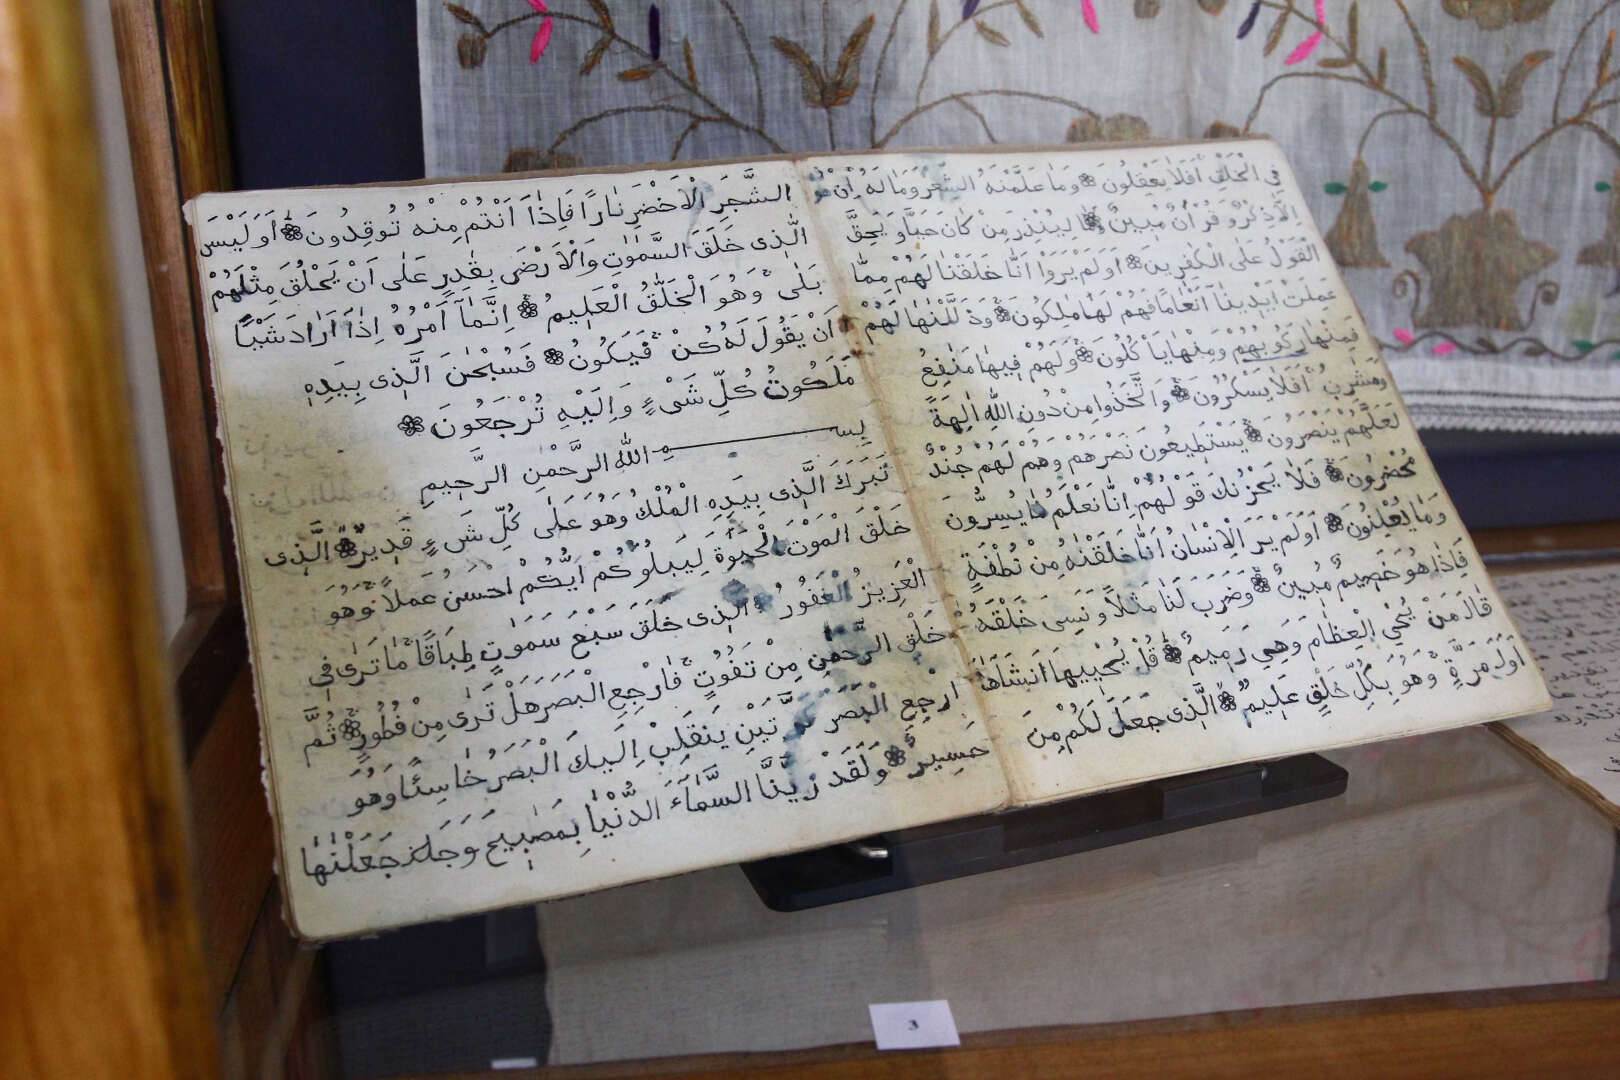 فِي الْخَلْقِ اَفَلَا يَعْقِلُونَ وَمَا عَلَّمْنَهُ الشِّعْرَ وَمَا لَهُ اِنْ هُوَ
اِلَّا ذِكْرٌ وَقُرْاٰنٌ مُبِينٌ لِيُنْذِرَ مِنْ كَانَ حَيًّا وَيَحِقَّ
الْقَوْلُ عَلَى الْكٰفِرِينَ اَوَلَمْ يَرَوْا اَنَّا خَلَقْنَا لَهُمْ مِمَّا
عَمِلَتْ اَيْدِينَا اَنْعَامًا فَهُمْ لَهَا مٰلِكُونَ وَذَلَّلْنٰهَا لَهُمْ
فَمِنْهَا رَكُوبُهُمْ وَمِنْهَا يَاْكُلُونَ وَلَهُمْ فِيهَا مَنٰفِعُ
وَمَشَرِبُ اَفَلَا يَسْكُرُونَ وَاتَّخَذُوا مِنْ دُونِ اللّٰهِ اٰلِهَةً
لَعَلَّهُمْ يَنْصَرُونَ يَسْتَطِيعُونَ نَصْرَهُمْ وَهُمْ لَهُمْ جُنْدٌ
مُحْضَرُونَ فَلَا يَحْزُنْكَ قَوْلُهُمْ اِنَّا نَعْلَمُ مَا يُسِرُّونَ
وَمَا يُعْلِنُونَ اَوَلَمْ يَرَ الْاِنْسَانُ اَنَّا خَلَقْنٰهُ مِنْ نُطْفَةٍ
فَاِذَا هُوَ خَصِيمٌ مُبِينٌ وَضَرَبَ لَنَا مَثَلًا وَنَسِىَ خَلْقَهُ
قَالَ مَنْ يُحْيِي الْعِظَامَ وَهِيَ رَمِيمٌ قُلْ يُحْيِيهَا الَّذِى اَنْشَاَهَا
اَوَّلَ مَرَّةٍ وَهُوَ بِكُلِّ خَلْقٍ عَلِيمٌ الَّذِى جَعَلَ لَكُمْ مِنَ
الشَّجَرِ الْاَخْضَرِ نَارًا فَاِذَا اَنْتُمْ مِنْهُ تُوقِدُونَ اَوَلَيْسَ
الَّذِى خَلَقَ السَّمٰوٰتِ وَالْاَرْضَ بِقٰدِرٍ عَلٰى اَنْ يَخْلُقَ مِثْلَهُمْ
بَلٰى وَهُوَ الْخَلّٰقُ الْعَلِيمُ اِنَّمَا اَمْرُهُ اِذَا اَرَادَ شَيْئًا
اَنْ يَقُولَ لَهُ كُنْ فَيَكُونُ فَسُبْحٰنَ الَّذِى بِيَدِهِ
مَلَكُوتُ كُلِّ شَىْءٍ وَاِلَيْهِ تُرْجَعُونَ
بِسْمِ اللّٰهِ الرَّحْمٰنِ الرَّحِيمِ
تَبَرَكَ الَّذِى بِيَدِهِ الْمُلْكُ وَهُوَ عَلٰى كُلِّ شَىْءٍ قَدِيرٌ الَّذِى
خَلَقَ الْمَوْتَ الْحَيٰوةَ لِيَبْلُوَكُمْ اَيُّكُمْ اَحْسَنُ عَمَلًا وَهُوَ
الْعَزِيزُ الْغَفُورُ الَّذِى خَلَقَ سَبْعَ سَمٰوٰتٍ طِبَاقًا مَا تَرٰى فِى
خَلْقِ الرَّحْمٰنِ مِنْ تَفٰوُتٍ فَارْجِعِ الْبَصَرَ هَلْ تَرٰى مِنْ فُطُورٍ ثُمَّ
ارْجِعِ الْبَصَرَ كَرَّتَيْنِ يَنْقَلِبْ اِلَيْكَ الْبَصَرُ خَاسِئًا وَهُوَ
حَسِيرٌ وَلَقَدْ زَيَّنَّا السَّمَاءَ الدُّنْيَا بِمَصٰبِيحَ وَجَعَلْنٰهَا
3